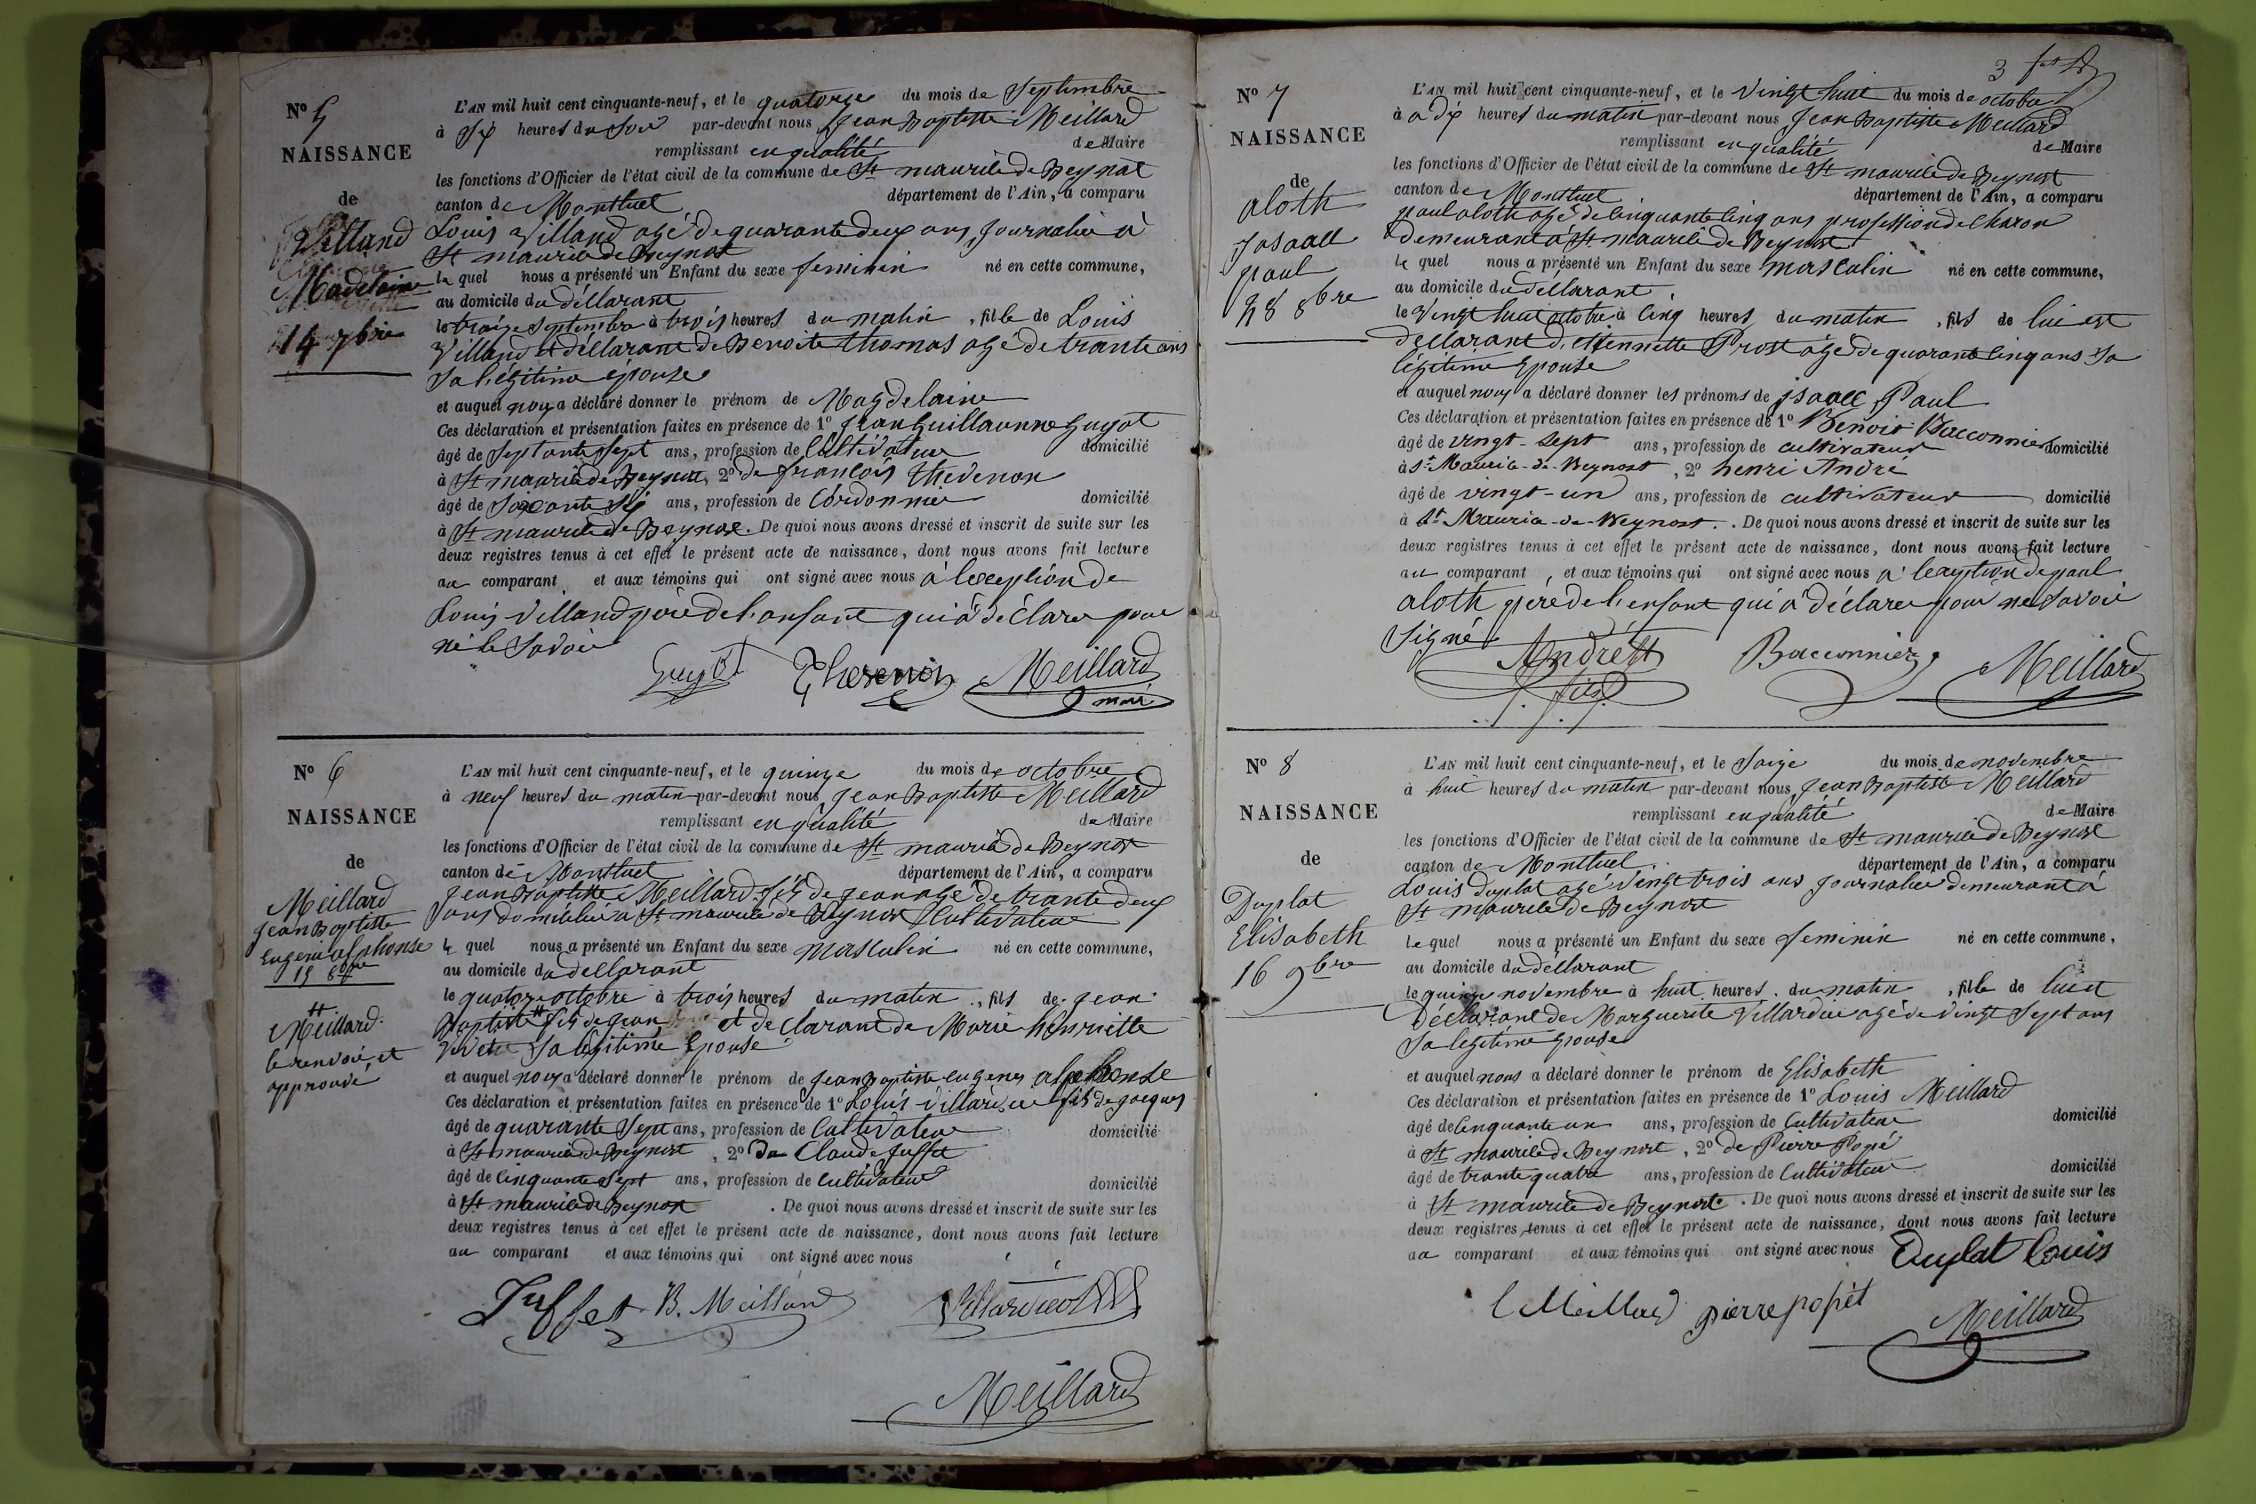 N° 5
NAISSANCE
de
Villand
Madelaine
14 7bre
L'AN mil huit cent cinquante-neuf, et le quatorze du mois de Septembre
à Six heures du Soir par-devant nous Jean Baptiste Meillard
remplissant en qualité de Maire
les fonctions d'Officier de l'état civil de la commune de St maurice de Beynost
canton de Montluel département de l'Ain, a comparu
Louis Villand agé de quarante deux ans, Journalier à
St maurice de Beynost
le quel nous a présenté un Enfant du sexe feminin né en cette commune,
au domicile du déclarant
le traize Septembre à trois heures du matin, fille de Louis
Villand et déclarant de Benoite thomas agé de trante ans
Sa légitime épouze
et auquel nous a déclaré donner le prénom de Magdelaine
Ces déclaration et présentation faites en présence de 1° Jean Guillaumne Guyot
âgé de Septante Sept ans, profession de Cultivateur domicilié
à St maurice de Beynost, 2° de francois thevenon
âgé de Soixante Six ans, profession de Cordonnier domicilié
à St maurice de Beynost. De quoi nous avons dressé et inscrit de suite sur les
deux registres tenus à cet effet le présent acte de naissance, dont nous avons fait lecture
au comparant et aux témoins qui ont signé avec nous à l'exception de
Louis Villand père de l'enfant qui a déclaré pour
ne le Savoir
Guyot Thevenon Meillard
mair
N° 6
NAISSANCE
de
Meillard
Jean Baptiste
Eugene alphonse
15 8bre
#
Meillard
le renvoie et
approuvé
L'AN mil huit cent cinquante-neuf, et le quinze du mois de octobre
à neuf heures du matin par-devant nous Jean Baptiste Meillard
remplissant en qualité de Maire
les fonctions d'Officier de l'état civil de la commune de St maurice de Beynost
canton de Montluel département de l'Ain, a comparu
Jean Baptiste Meillard fils de Jean agé de trante deux
ans domicilié à St maurice de Beynost Cultivateur
le quel nous a présenté un Enfant du sexe masculin né en cette commune,
au domicile du déclarant
le quatorze octobre à trois heures du matin, fils de Jean
Baptiste # fils de Jean et de clarant de Marie henriette
Sa légitime Epouse
et auquel nous a déclaré donner le prénom de Jean Baptiste eugenes alphonse
Ces déclaration et présentation faites en présence de 1° Louis Villardieu fils de Jacques
âgé de quarante Sept ans, profession de Cultivateur domicilié
à St maurice de Beynost, 2° De Claude Juffet
âgé de Cinquante Sept ans, profession de Cultivateur domicilié
à St maurice de Beynost. De quoi nous avons dressé et inscrit de suite sur les
deux registres tenus à cet effet le présent acte de naissance, dont nous avons fait lecture
au comparant et aux témoins qui ont signé avec nous
Juffet B. Meilland Villardieu
Meillard
3
N° 7
NAISSANCE
de
aloth
Jsaact
paul
28 8bre
L'AN mil huit cent cinquante-neuf, et le Vingt huit du mois de octobre
à a dix heures du matin par-devant nous Jean Baptiste Meillard
remplissant en qualité de Maire
les fonctions d'Officier de l'état civil de la commune de St maurice de Beynost
canton de Montluel département de l'Ain, a comparu
paul aloth agé de Cinquante Cinq ans profession de Charon
demeurant à St maurice de Beynost
le quel nous a présenté un Enfant du sexe masculin né en cette commune,
au domicile du déclarant
le Vingt huit octobre à Cinq heures du matin, fils de lui est
déclarant d'etiennette Prost agé de quarante Cinq ans Sa
légitime Epouse
et auquel nous a déclaré donner les prénoms de jsaac Paul
Ces déclaration et présentation faites en présence de 1° Benoit Bacconnier
âgé de vingt-sept ans, profession de cultivateur domicilié
à St Maurice-de-Beynost, 2° henri André
âgé de vingt-un ans, profession de cultivateur domicilié
à St Maurice-de-Beynost. De quoi nous avons dressé et inscrit de suite sur les
deux registres tenus à cet effet le présent acte de naissance, dont nous avons fait lecture
au comparant, et aux témoins qui ont signé avec nous a l'exception de paul
aloth pere de l'enfant qui a déclarer pour ne Savoir
Signé
André Bacconnier Meillard
fils
N° 8
NAISSANCE
de
Duplat
Elisabeth
16 9bre
L'AN mil huit cent cinquante-neuf, et le Saize du mois de novembre
à huit heures du matin par-devant nous Jean Baptiste Meillard
remplissant en qualité de Maire
les fonctions d'Officier de l'état civil de la commune de St maurice de Beynost
canton de Montluel département de l'Ain, a comparu
Louis Duplat agé Vingt trois ans Journalier demeurant à
St maurice de Beynost
le quel nous a présenté un Enfant du sexe feminin né en cette commune,
au domicile du déclarant
le quinze novembre à huit heures du matin, fille de lui et
déclarant de Marguerite Villardieu agé de Vingt Sept ans
Sa légitime Epouse
et auquel nous a déclaré donner le prénom de Elisabeth
Ces déclaration et présentation faites en présence de 1° Louis Meillard
âgé de Cinquante un ans, profession de Cultivateur domicilié
à St maurice de Beynost, 2° de Pierre Popié
âgé de trante quatre ans, profession de Cultivateur domicilié
à St maurice de Beynoste. De quoi nous avons dressé et inscrit de suite sur les
deux registres tenus à cet effet le présent acte de naissance, dont nous avons fait lecture
au comparant et aux témoins qui ont signé avec nous Duplat Louis
L Meillard pierre popiet Meillard